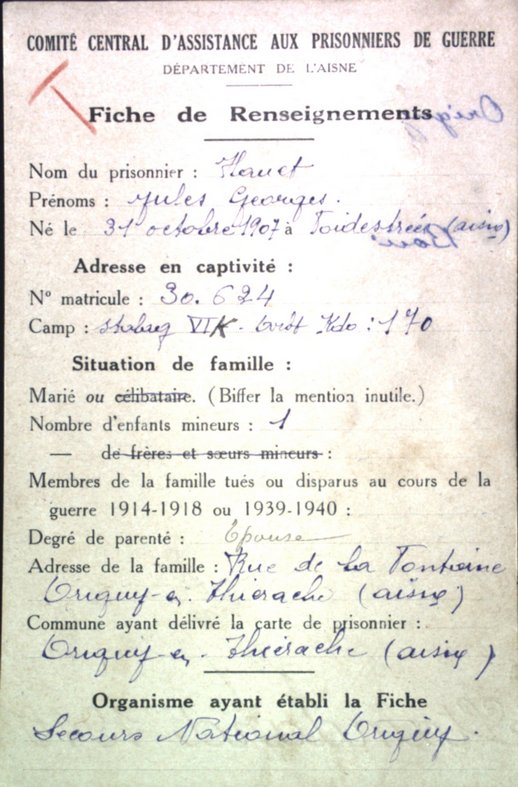 COMITÉ CENTRAL D'ASSISTANCE AUX PRISONNIERS DE GUERRE
DÉPARTEMENT DE L'AISNE
Fiche de Renseignements
Nom du prisonnier : Hauet
Prénoms : Jules Georges.
Né le 31 octobre 1907 à (aisne)
Adresse en captivité :
N° matricule : 30.624
Camp : stalag VI K - Kdo : 170
Situation de famille :
Marié ou célibataire. (Biffer la mention inutile.)
Nombre d'enfants mineurs : 1
— de frères et sœurs mineurs :
Membres de la famille tués ou disparus au cours de la
guerre 1914-1918 ou 1939-1940 :
Degré de parenté : Epouse
Adresse de la famille : Rue de La Fontaine
Origny-en-Thiérache (aisne)
Commune ayant délivré la carte de prisonnier :
Origny-en-Thiérache (aisne)
Organisme ayant établi la Fiche
Secours National Origny.